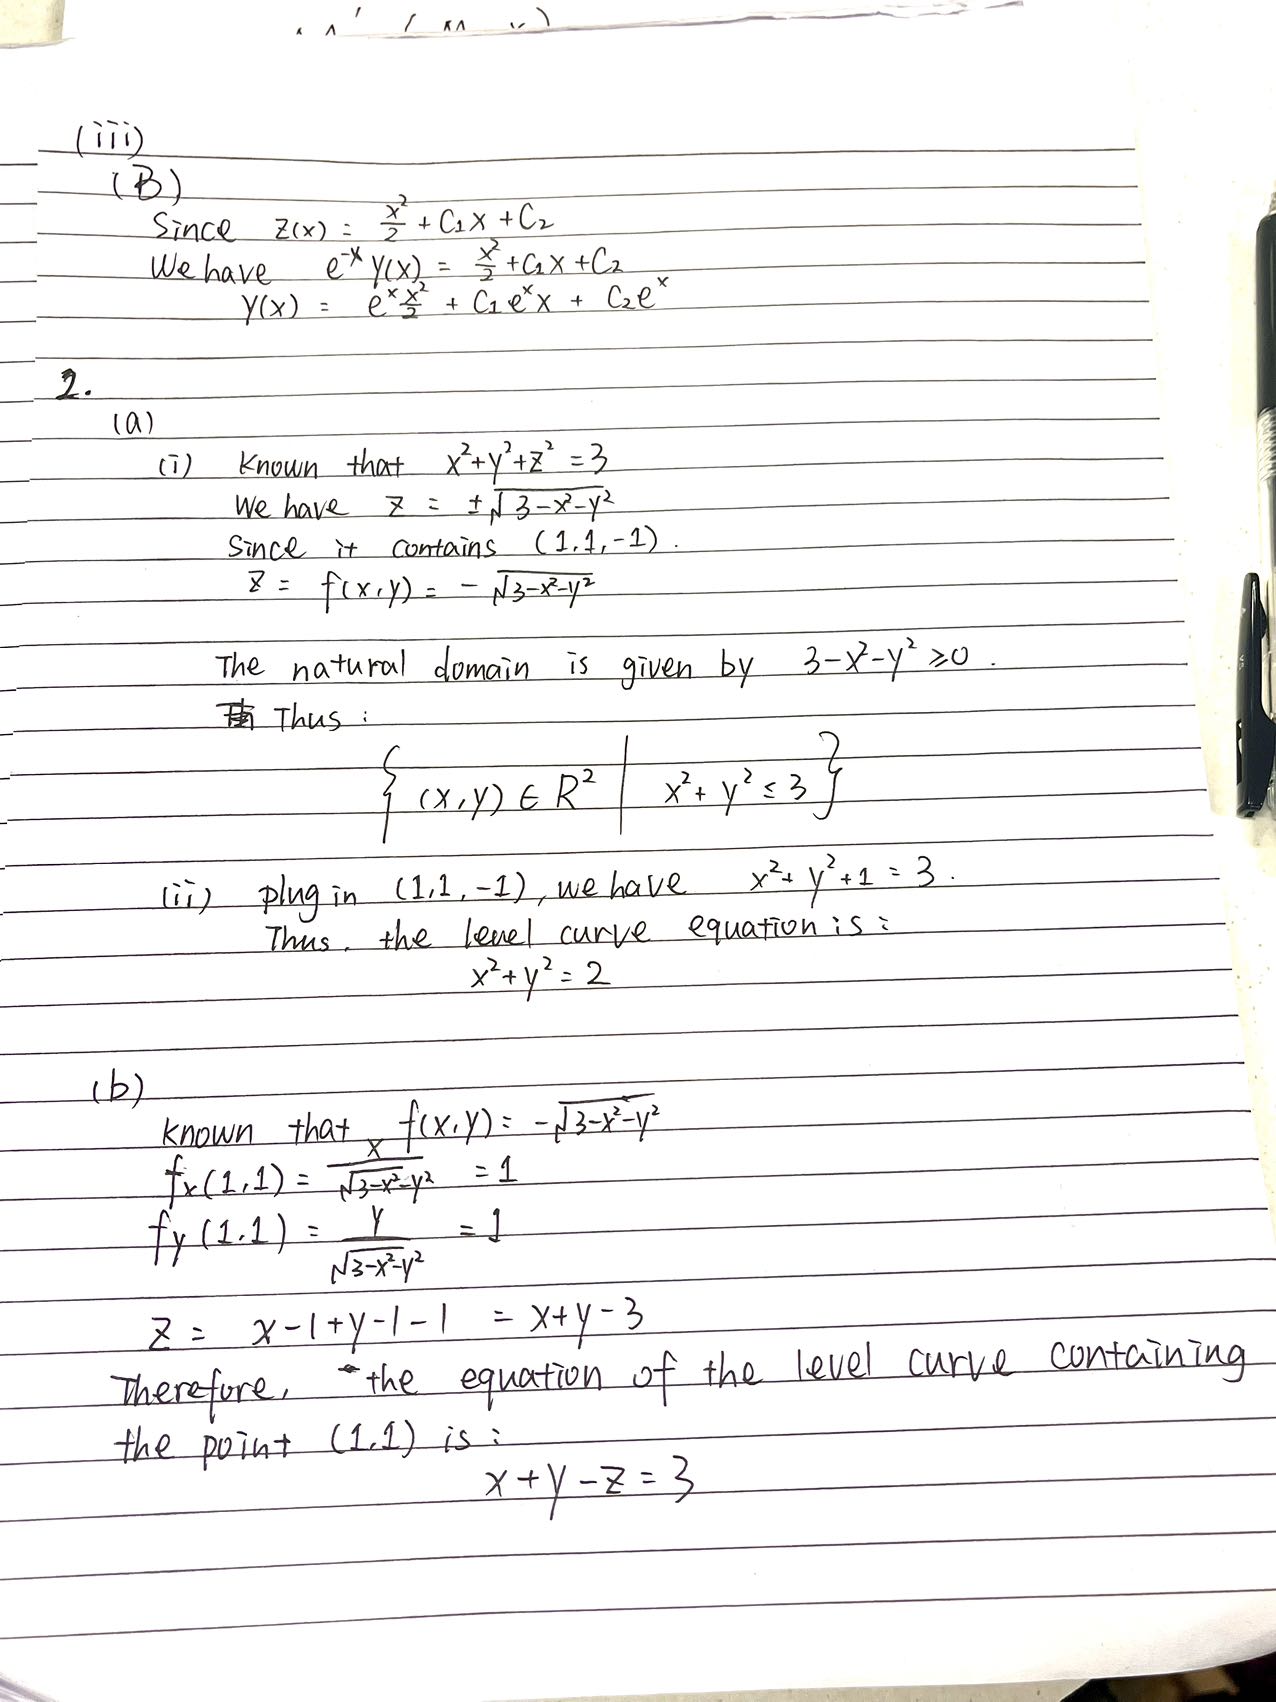 (iii)
(B)
Since z(x) = x²/2 + C₁x + C₂
We have e⁻ˣ y(x) = x²/2 + C₁x + C₂
y(x) = eˣ x²/2 + C₁eˣx + C₂eˣ
2.
(a)
(i) Known that x²+y²+z² = 3
We have z = ±√(3-x²-y²)
Since it contains (1,1,-1).
z = f(x,y) = -√(3-x²-y²)
The natural domain is given by 3-x²-y² ≥0.
Thus:
{ (x,y) ∈ R² | x²+ y² ≤ 3 }
(ii) plug in (1,1,-1), we have x²+ y²+1 = 3.
Thus, the level curve equation is:
x²+y² = 2
(b)
Known that f(x,y) = -√(3-x²-y²)
fx(1,1) = x/√(3-x²-y²) = 1
fy(1,1) = y/√(3-x²-y²) = 1
z = x-1+y-1-1 = x+y-3
Therefore, the equation of the level curve containing
the point (1,1) is:
x+y-z = 3